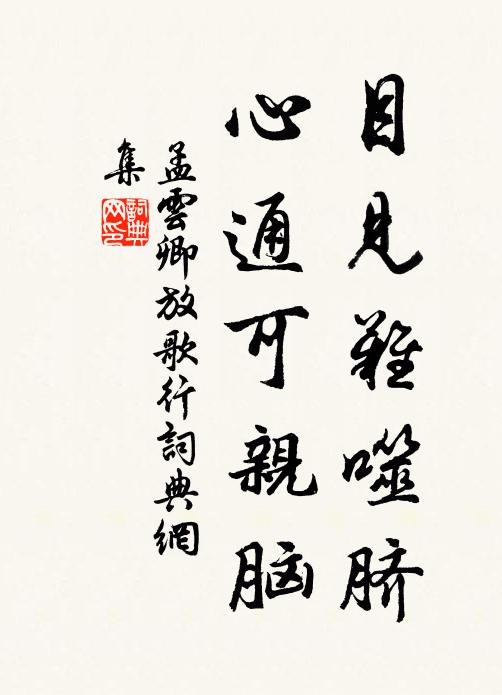 目見難噬脐
心通可親脑
孟雲卿放歌行詞典網
集
詞典
网印